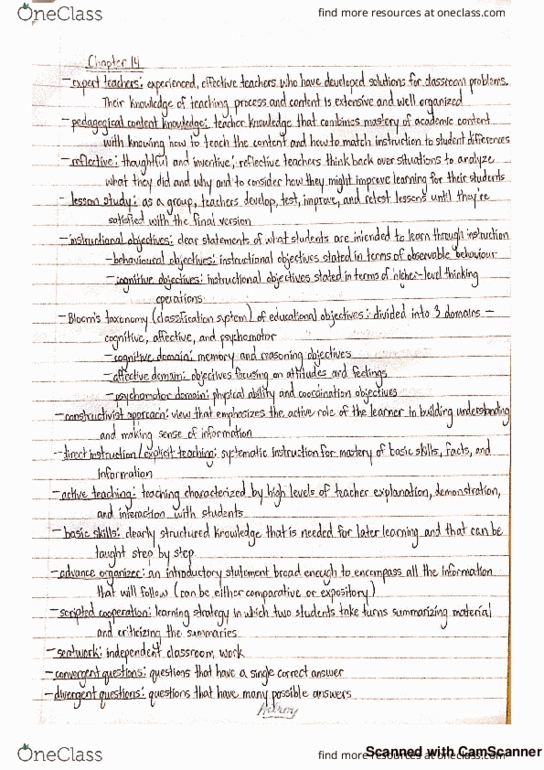 OneClass
find more resources at oneclass.com
Chapter 14
- expert teachers: experienced, effective teachers who have developed solutions for classroom problems.
Their knowledge of teaching process and content is extensive and well organized
- pedagogical content knowledge: teacher knowledge that combines mastery of academic content
with knowing how to teach the content and how to match instruction to student differences
- reflective: thoughtful and inventive; reflective teachers think back over situations to analyze
what they did and why and to consider how they might improve learning for their students
- lesson study: as a group, teachers develop, test, improve, and retest lessons until they're
satisfied with the final version
- instructional objectives: clear statements of what students are intended to learn through instruction
- behavioural objectives: instructional objectives stated in terms of observable behaviour
- cognitive objectives: instructional objectives stated in terms of higher-level thinking
operations
- Bloom's taxonomy (classification system) of educational objectives: divided into 3 domains -
cognitive, affective, and psychomotor
- cognitive domain: memory and reasoning objectives
- affective domain: objectives focusing on attitudes and feelings
- psychomotor domain: physical ability and coordination objectives
- constructivist approach: view that emphasizes the active role of the learner in building understanding
and making sense of information
- direct instruction/explicit teaching: systematic instruction for mastery of basic skills, facts, and
information
- active teaching: teaching characterized by high levels of teacher explanation, demonstration,
and interaction with students
- basic skills: clearly structured knowledge that is needed for later learning and that can be
taught step by step
- advance organizer: an introductory statement broad enough to encompass all the information
that will follow (can be either comparative or expository)
- scripted cooperation: learning strategy in which two students take turns summarizing material
and criticizing the summaries
- seatwork: independent classroom work
- convergent questions: questions that have a single correct answer
- divergent questions: questions that have many possible answers
OneClass
find more resources at oneclass.com
Scanned with CamScanner